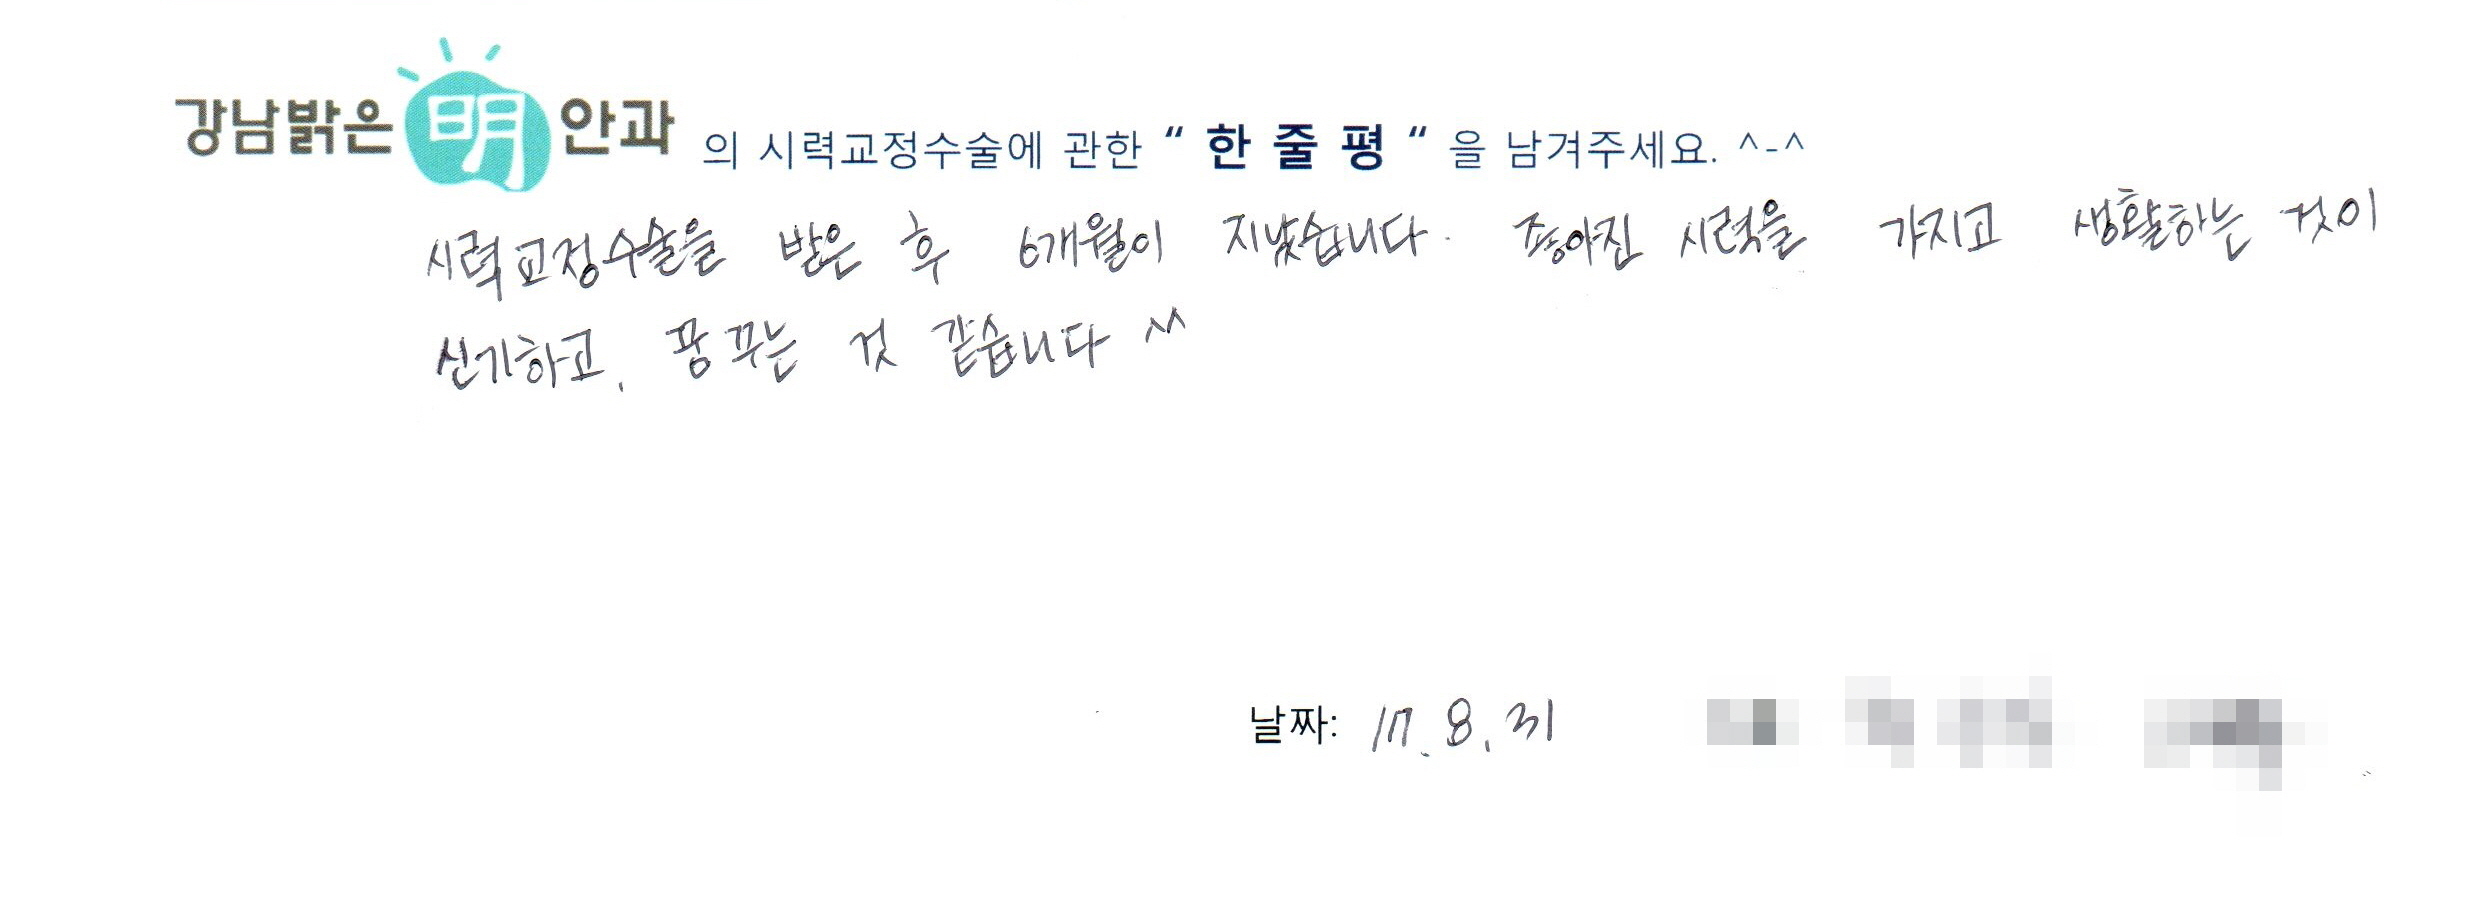 강남밝은 明 안과 의 시력교정수술에 관한 “ 한 줄 평 “ 을 남겨주세요. ^-^
시력교정수술을 받은 후 6개월이 지났습니다. 좋아진 시력을 가지고 생활하는 것이
신기하고, 꿈 꾸는 것 같습니다 ^^
날짜: 17. 8. 31